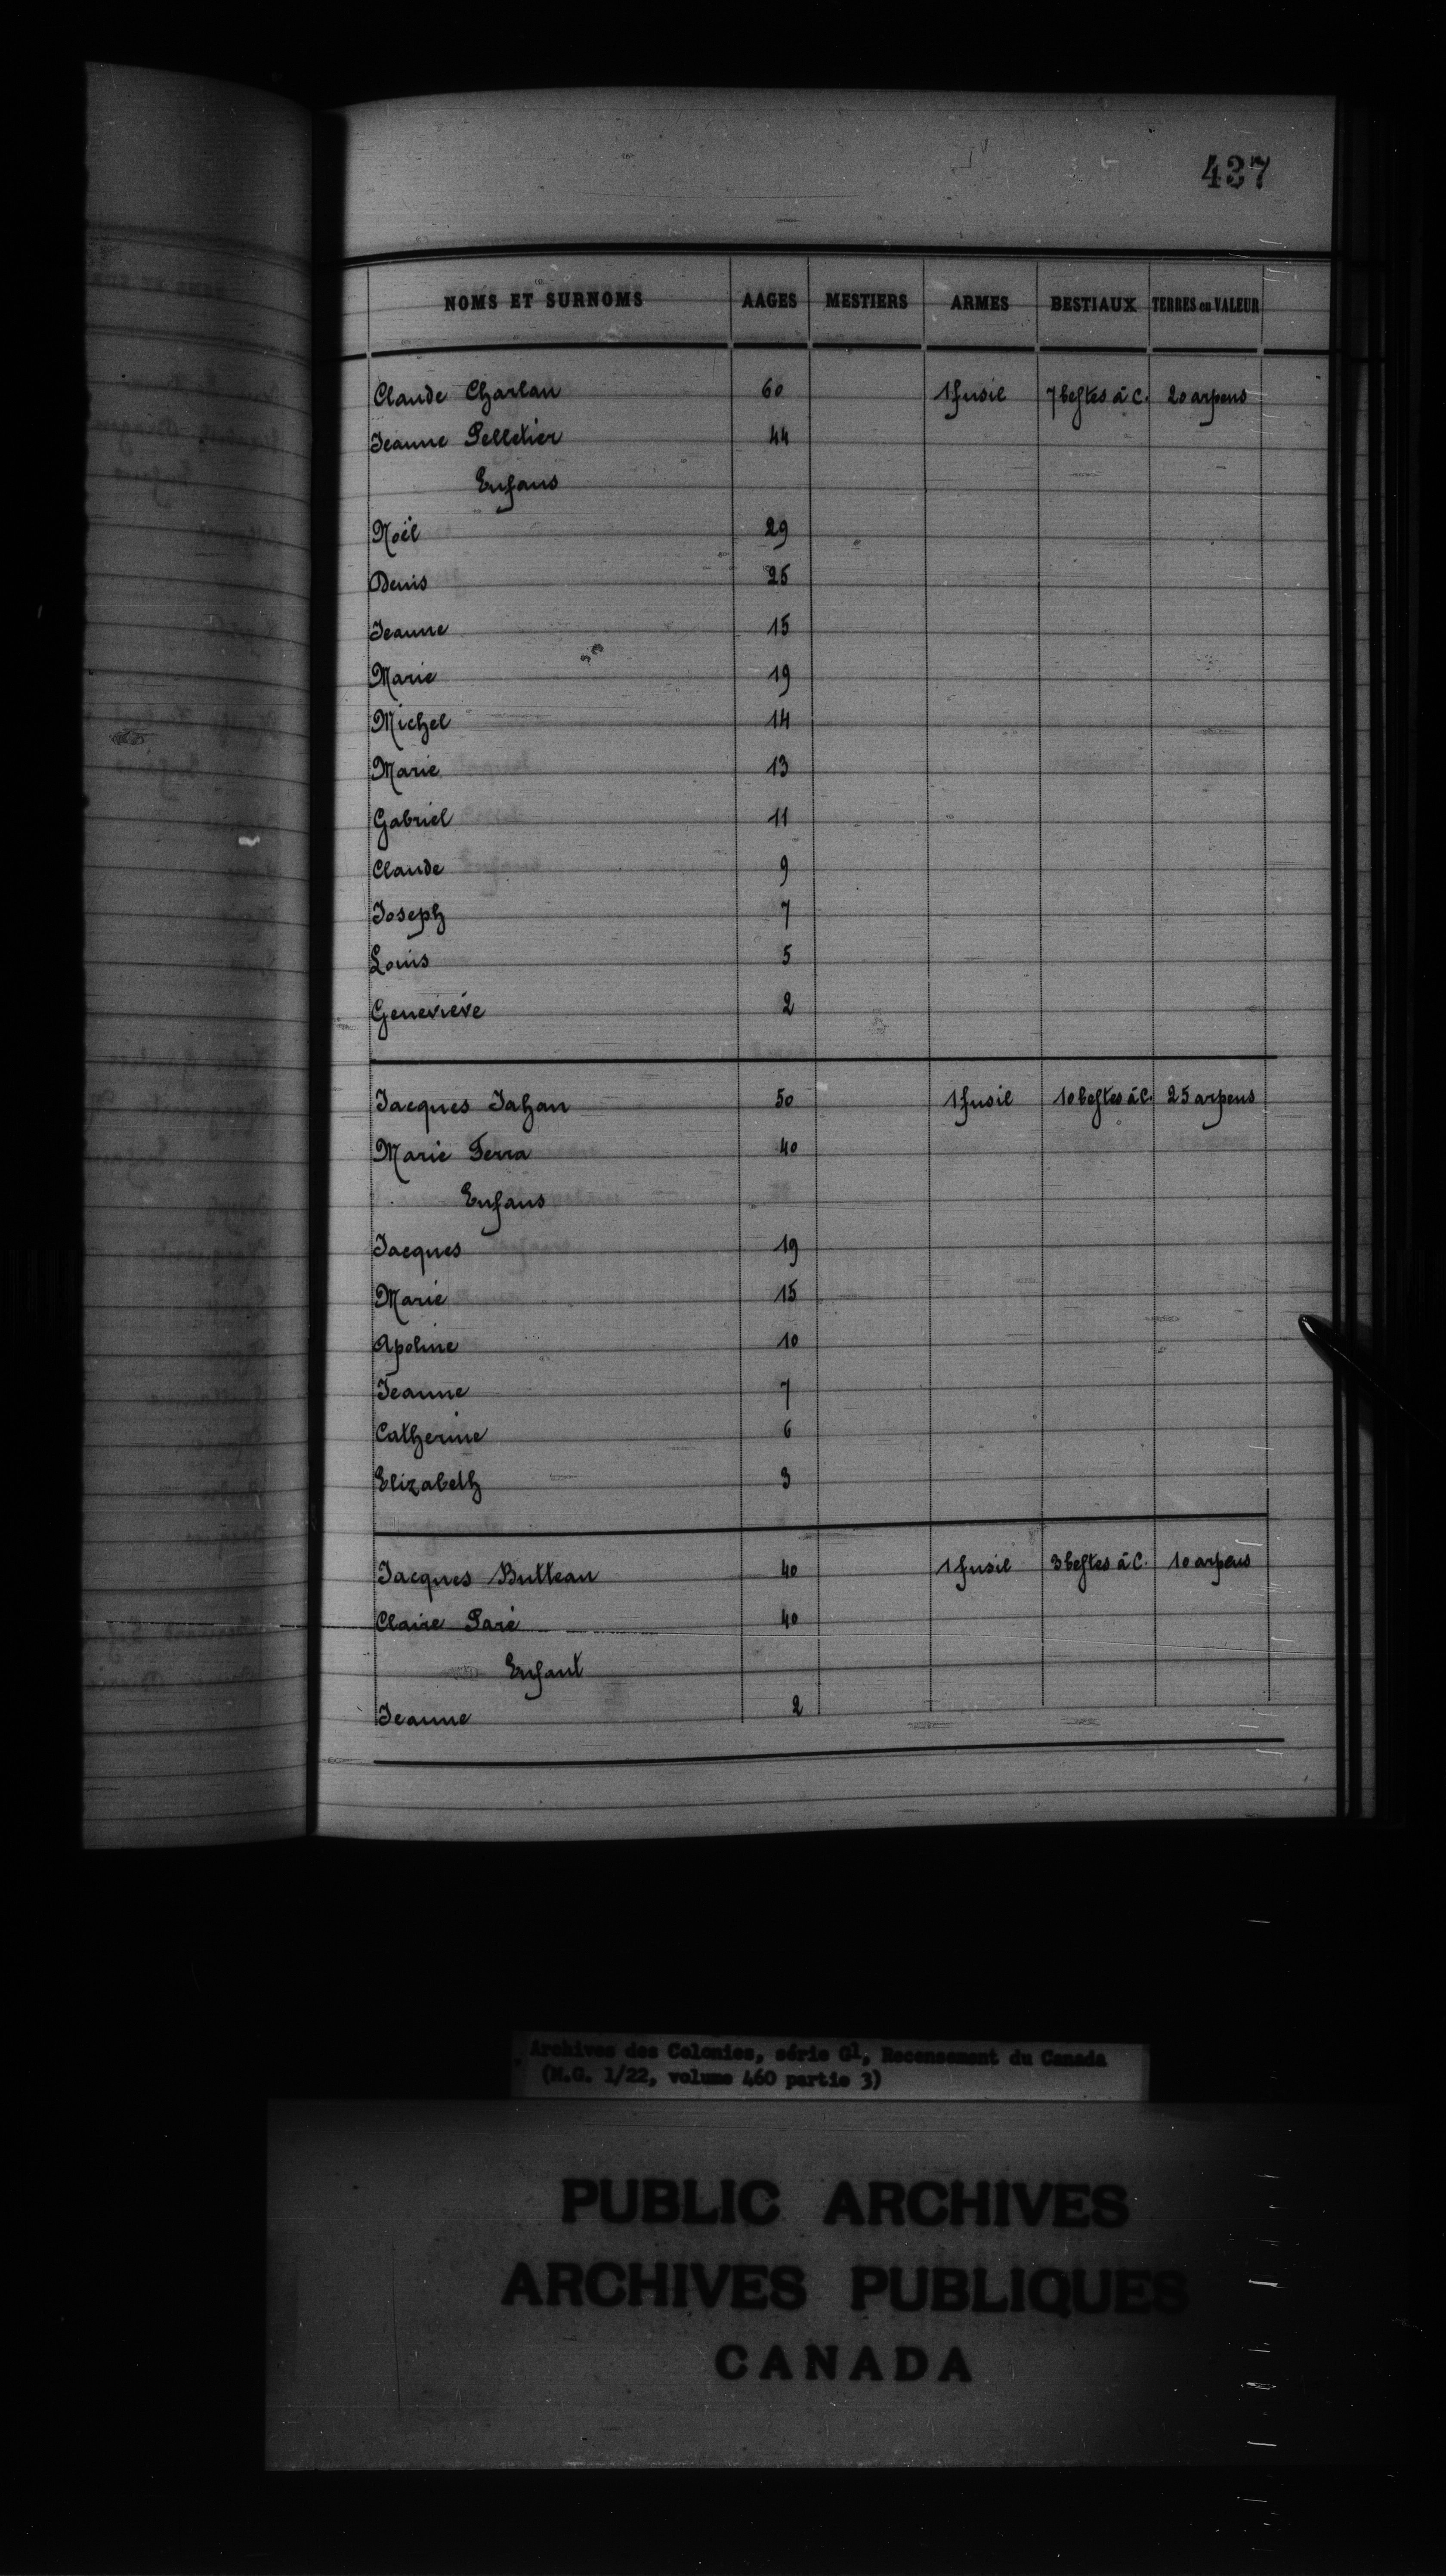 437
NOMS ET SURNOMS AAGES MESTIERS ARMES BESTIAUX TERRES ou VALEUR
Claude Charlan 60 1 fusil 7 bestes à C. 20 arpens
Jeanne Pelletier 44
Enfans
Noël 29
Denis 25
Jeanne 15
Marie 19
Michel 14
Marie 13
Gabriel 11
Claude 9
Joseph 7
Louis 5
Geneviève 2
Jacques Jahan 50 1 fusil 10 bestes à C. 25 arpens
Marie Ferra 40
Enfans
Jacques 19
Marie 15
Apoline 10
Jeanne 7
Catherine 6
Elizabeth 3
Jacques Butteau 40 1 fusil 3 bestes à C. 10 arpens
Claire Paré 40
Enfant
Jeanne 2
Archives des Colonies, série G1, Recensement du Canada
(M.G. 1/22, volume 460 partie 3)
PUBLIC ARCHIVES
ARCHIVES PUBLIQUES
CANADA